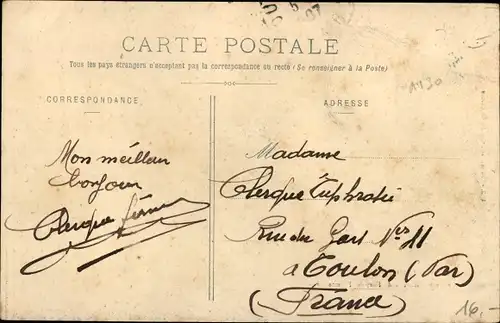 CARTE POSTALE
Tous les pays étrangers n'acceptent pas la correspondance au recto (Se renseigner à la Poste)
CORRESPONDANCE
ADRESSE
1130
Mon meilleur
bonjour
Clerque
Madame
Clerque
Rue du Gars Nos 11
à Toulon (Var)
(France)
16.